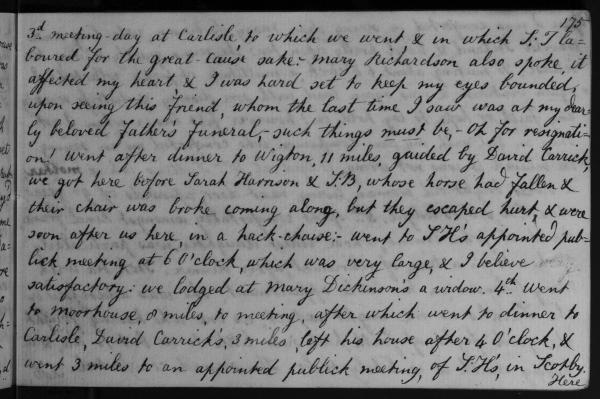 175
3d meeting-day at Carlisle, to which we went & in which S:T la-
boured for the great-Cause sake:- Mary Richardson also spoke it
affected my heart & I was hard set to keep my eyes bounded,
upon seeing this Friend, whom the last time I saw was at my dear-
ly beloved Father's Funeral,- such things must be,- Oh for resignati-
on! went after dinner to Wigton, 11 miles, guided by David Carrick,
we got here before Sarah Harrison & S.B, whose horse had fallen &
their chair was broke coming along, but they escaped hurt, & were
soon after us here, in a hack-chaise:- went to S H's appointed pub-
lick meeting at 6 O'clock, which was very large, & I believe
satisfactory: we lodged at Mary Dickinson's a widow. 4th went
to Moorhouse, 8 miles, to meeting, after which went to dinner to
Carlisle, David Carrick's, 3 miles, left his house after 4 O'clock, &
went 3 miles to an appointed publick meeting, of S.H's, in Scotby.
Here